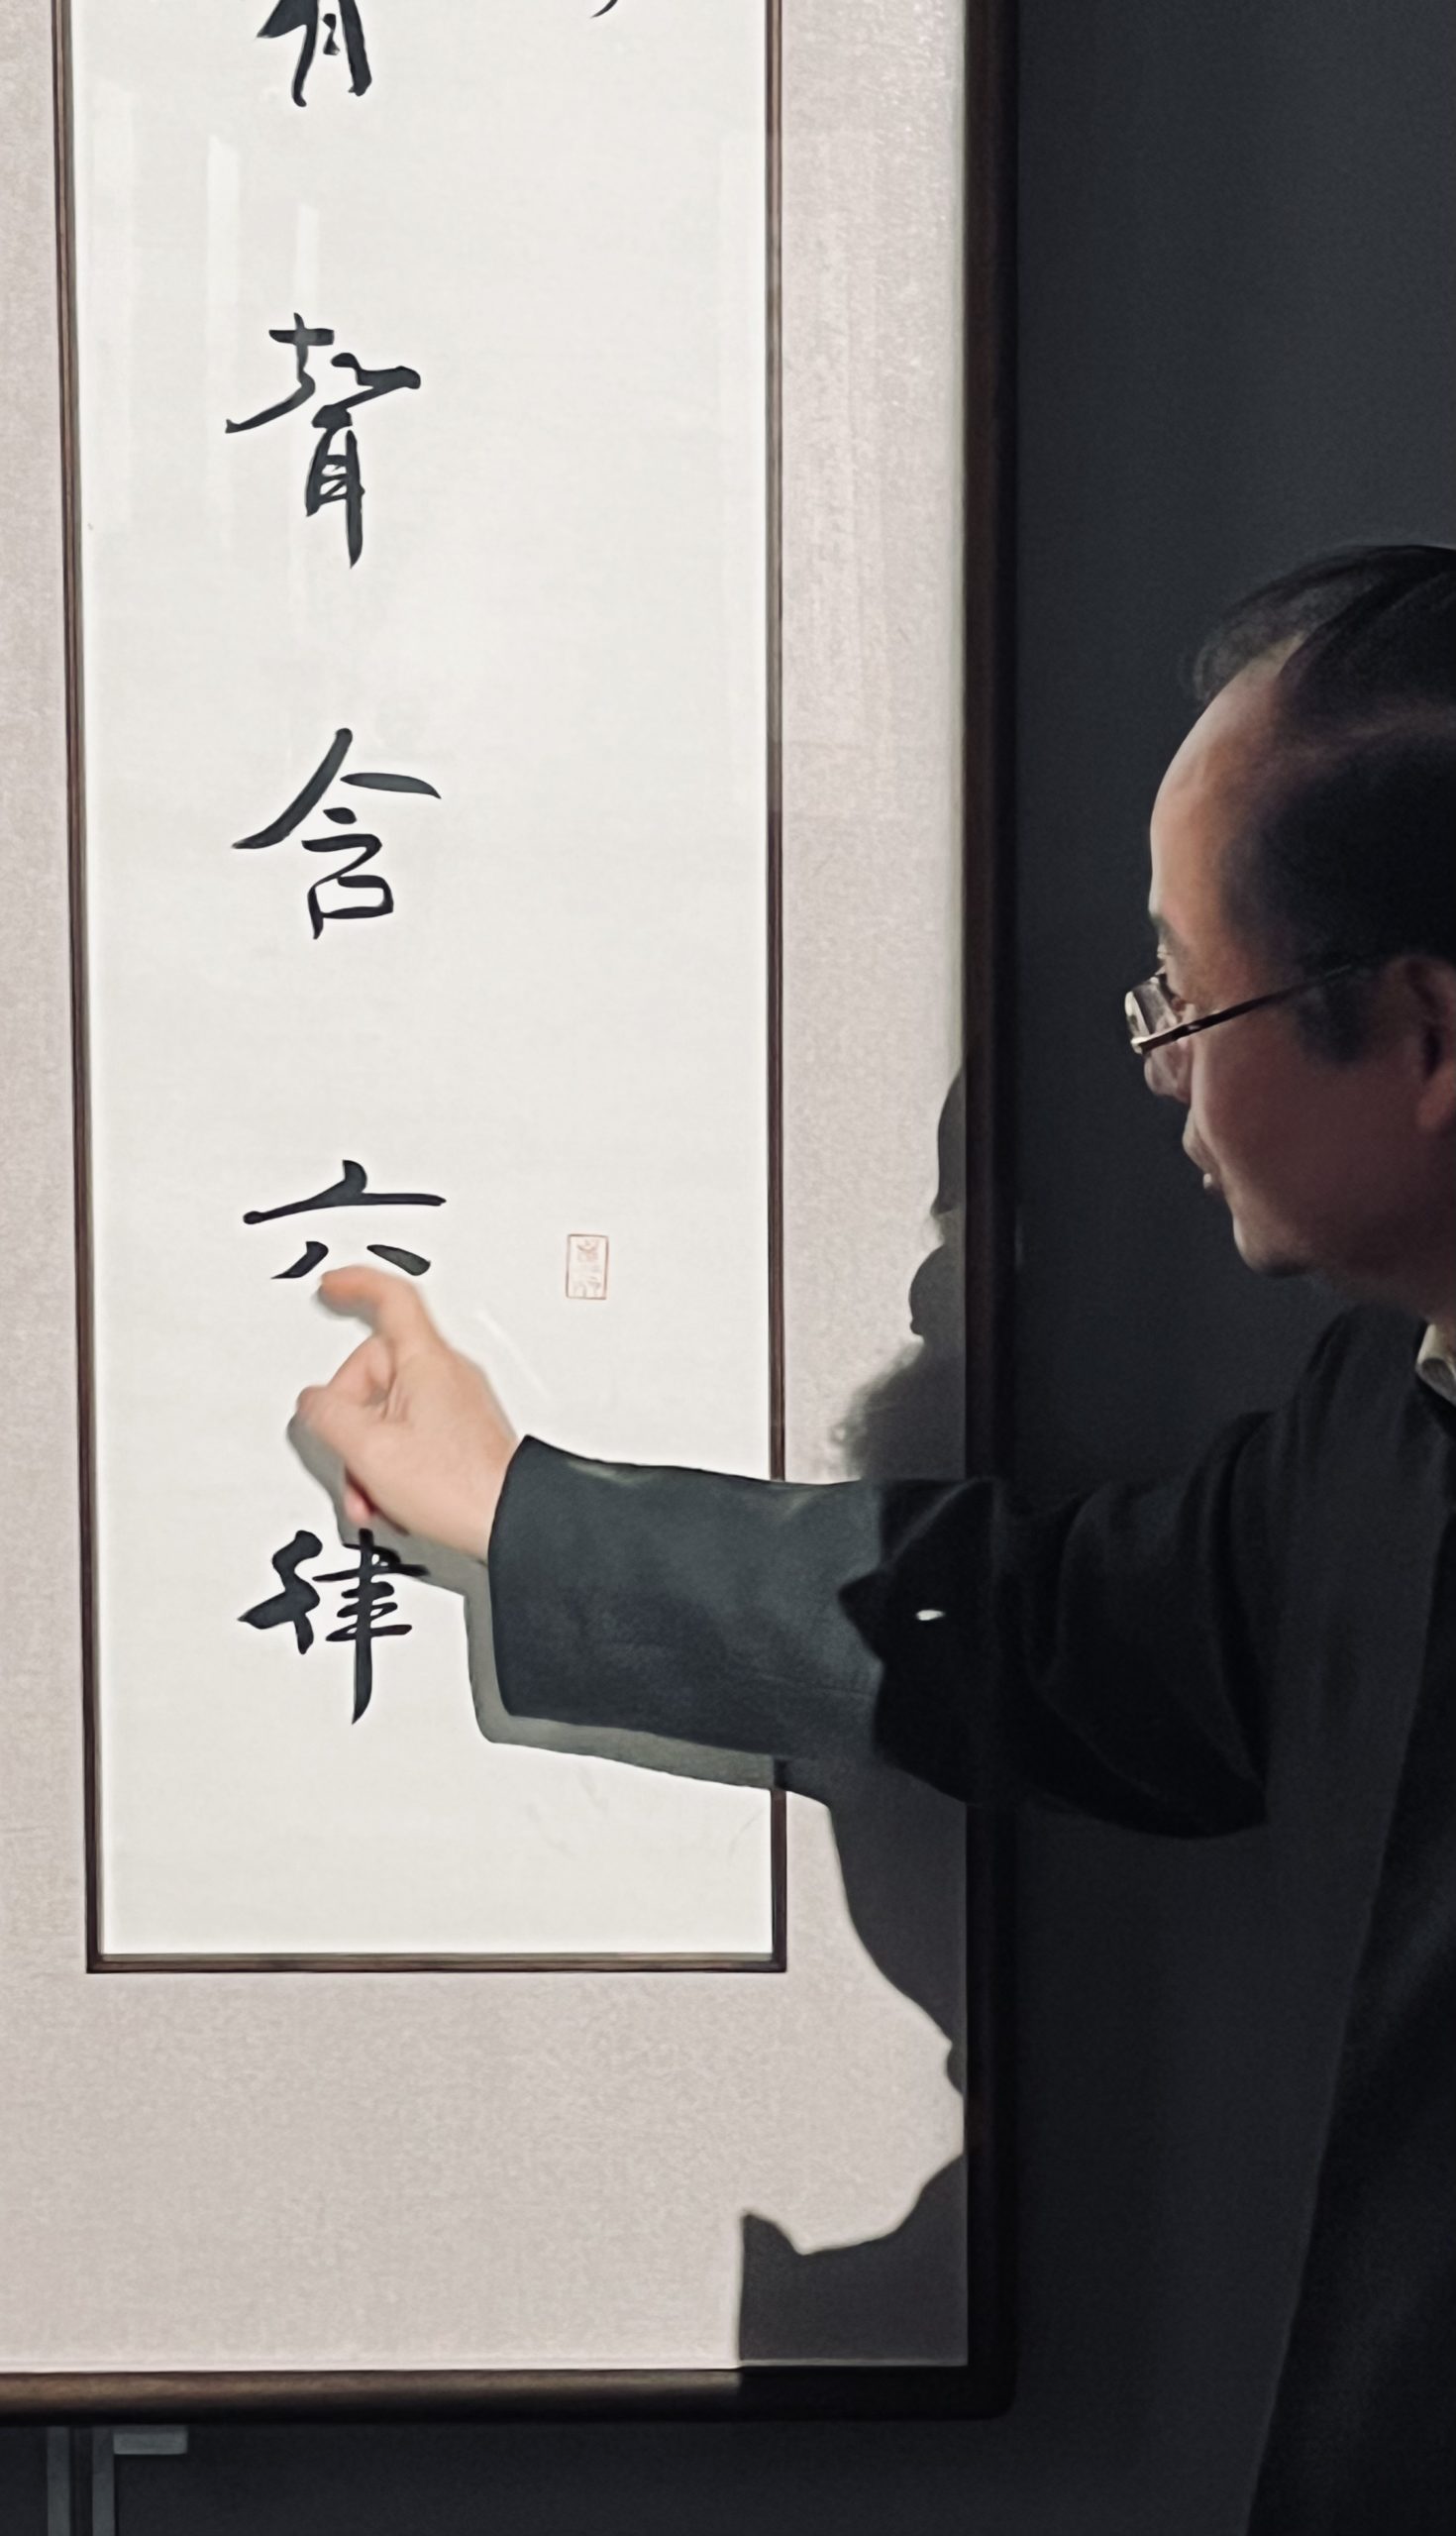 聲含六律